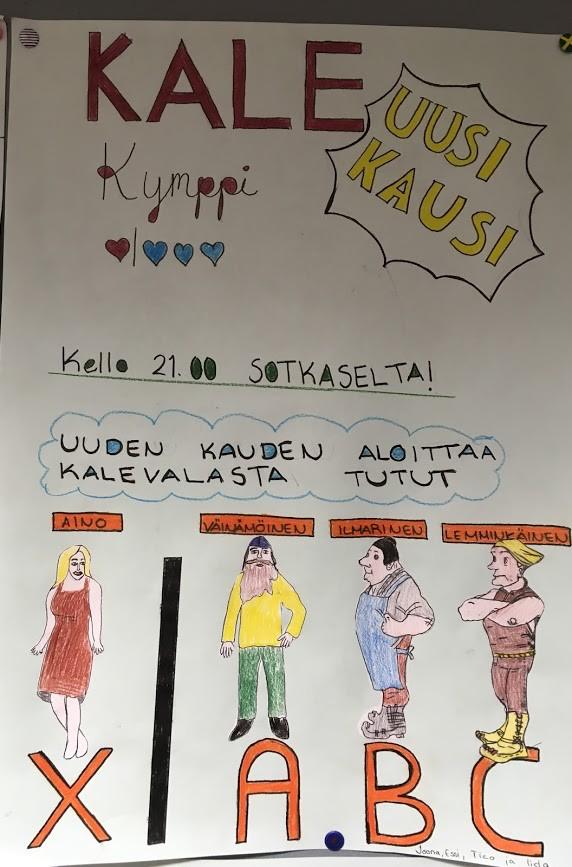 KALE
UUSI
KAUSI
Kymppi
Kello 21.00 SOTKASELTA!
UUDEN KAUDEN ALOITTAA
KALEVALASTA TUTUT
AINO
VÄINÄMÖINEN
ILMARINEN
LEMMINKÄINEN
X A B C
Joona, Essi, Tico ja Iida